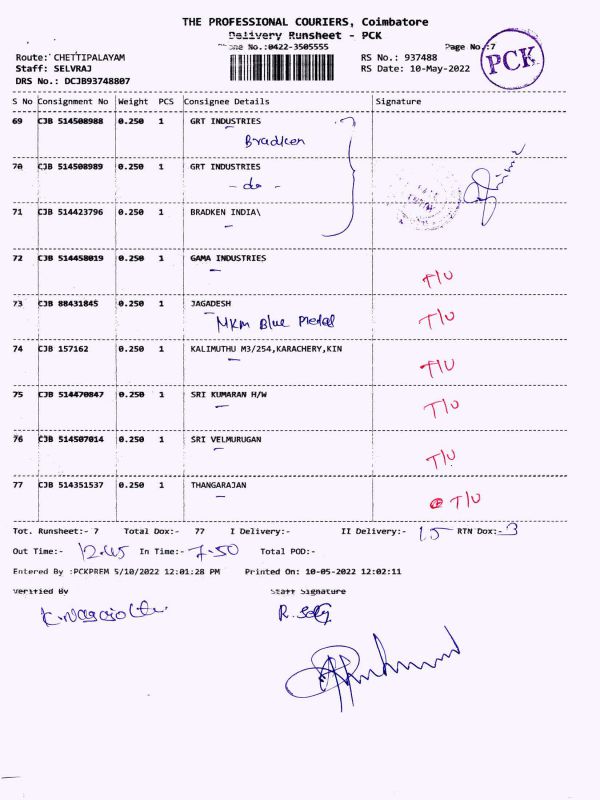 THE PROFESSIONAL COURIERS, Coimbatore
Delivery Runsheet - PCK
Phone No.:0422-3505555 Page No.:7
PCK
Route: CHETTIPALAYAM RS No.: 937488
Staff: SELVRAJ RS Date: 10-May-2022
DRS No.: DCJB93748807
S No Consignment No Weight PCS Consignee Details Signature
69 CJB 514508988 0.250 1 GRT INDUSTRIES
Bradken
70 CJB 514508989 0.250 1 GRT INDUSTRIES
- do -
71 CJB 514423796 0.250 1 BRADKEN INDIA\
72 CJB 514458019 0.250 1 GAMA INDUSTRIES
T/U
73 CJB 88431845 0.250 1 JAGADESH
MKM Blue Medal T/U
74 CJB 157162 0.250 1 KALIMUTHU M3/254,KARACHERY,KIN
T/U
75 CJB 514470847 0.250 1 SRI KUMARAN H/W
T/U
76 CJB 514507014 0.250 1 SRI VELMURUGAN
T/U
77 CJB 514351537 0.250 1 THANGARAJAN
T/U
Tot. Runsheet:- 7 Total Dox:- 77 I Delivery:- II Delivery:- 15 RTN Dox:- 3
Out Time:- 12.45 In Time:- 7-50 Total POD:-
Entered By :PCKPREM 5/10/2022 12:01:28 PM Printed On: 10-05-2022 12:02:11
Verified By Staff Signature